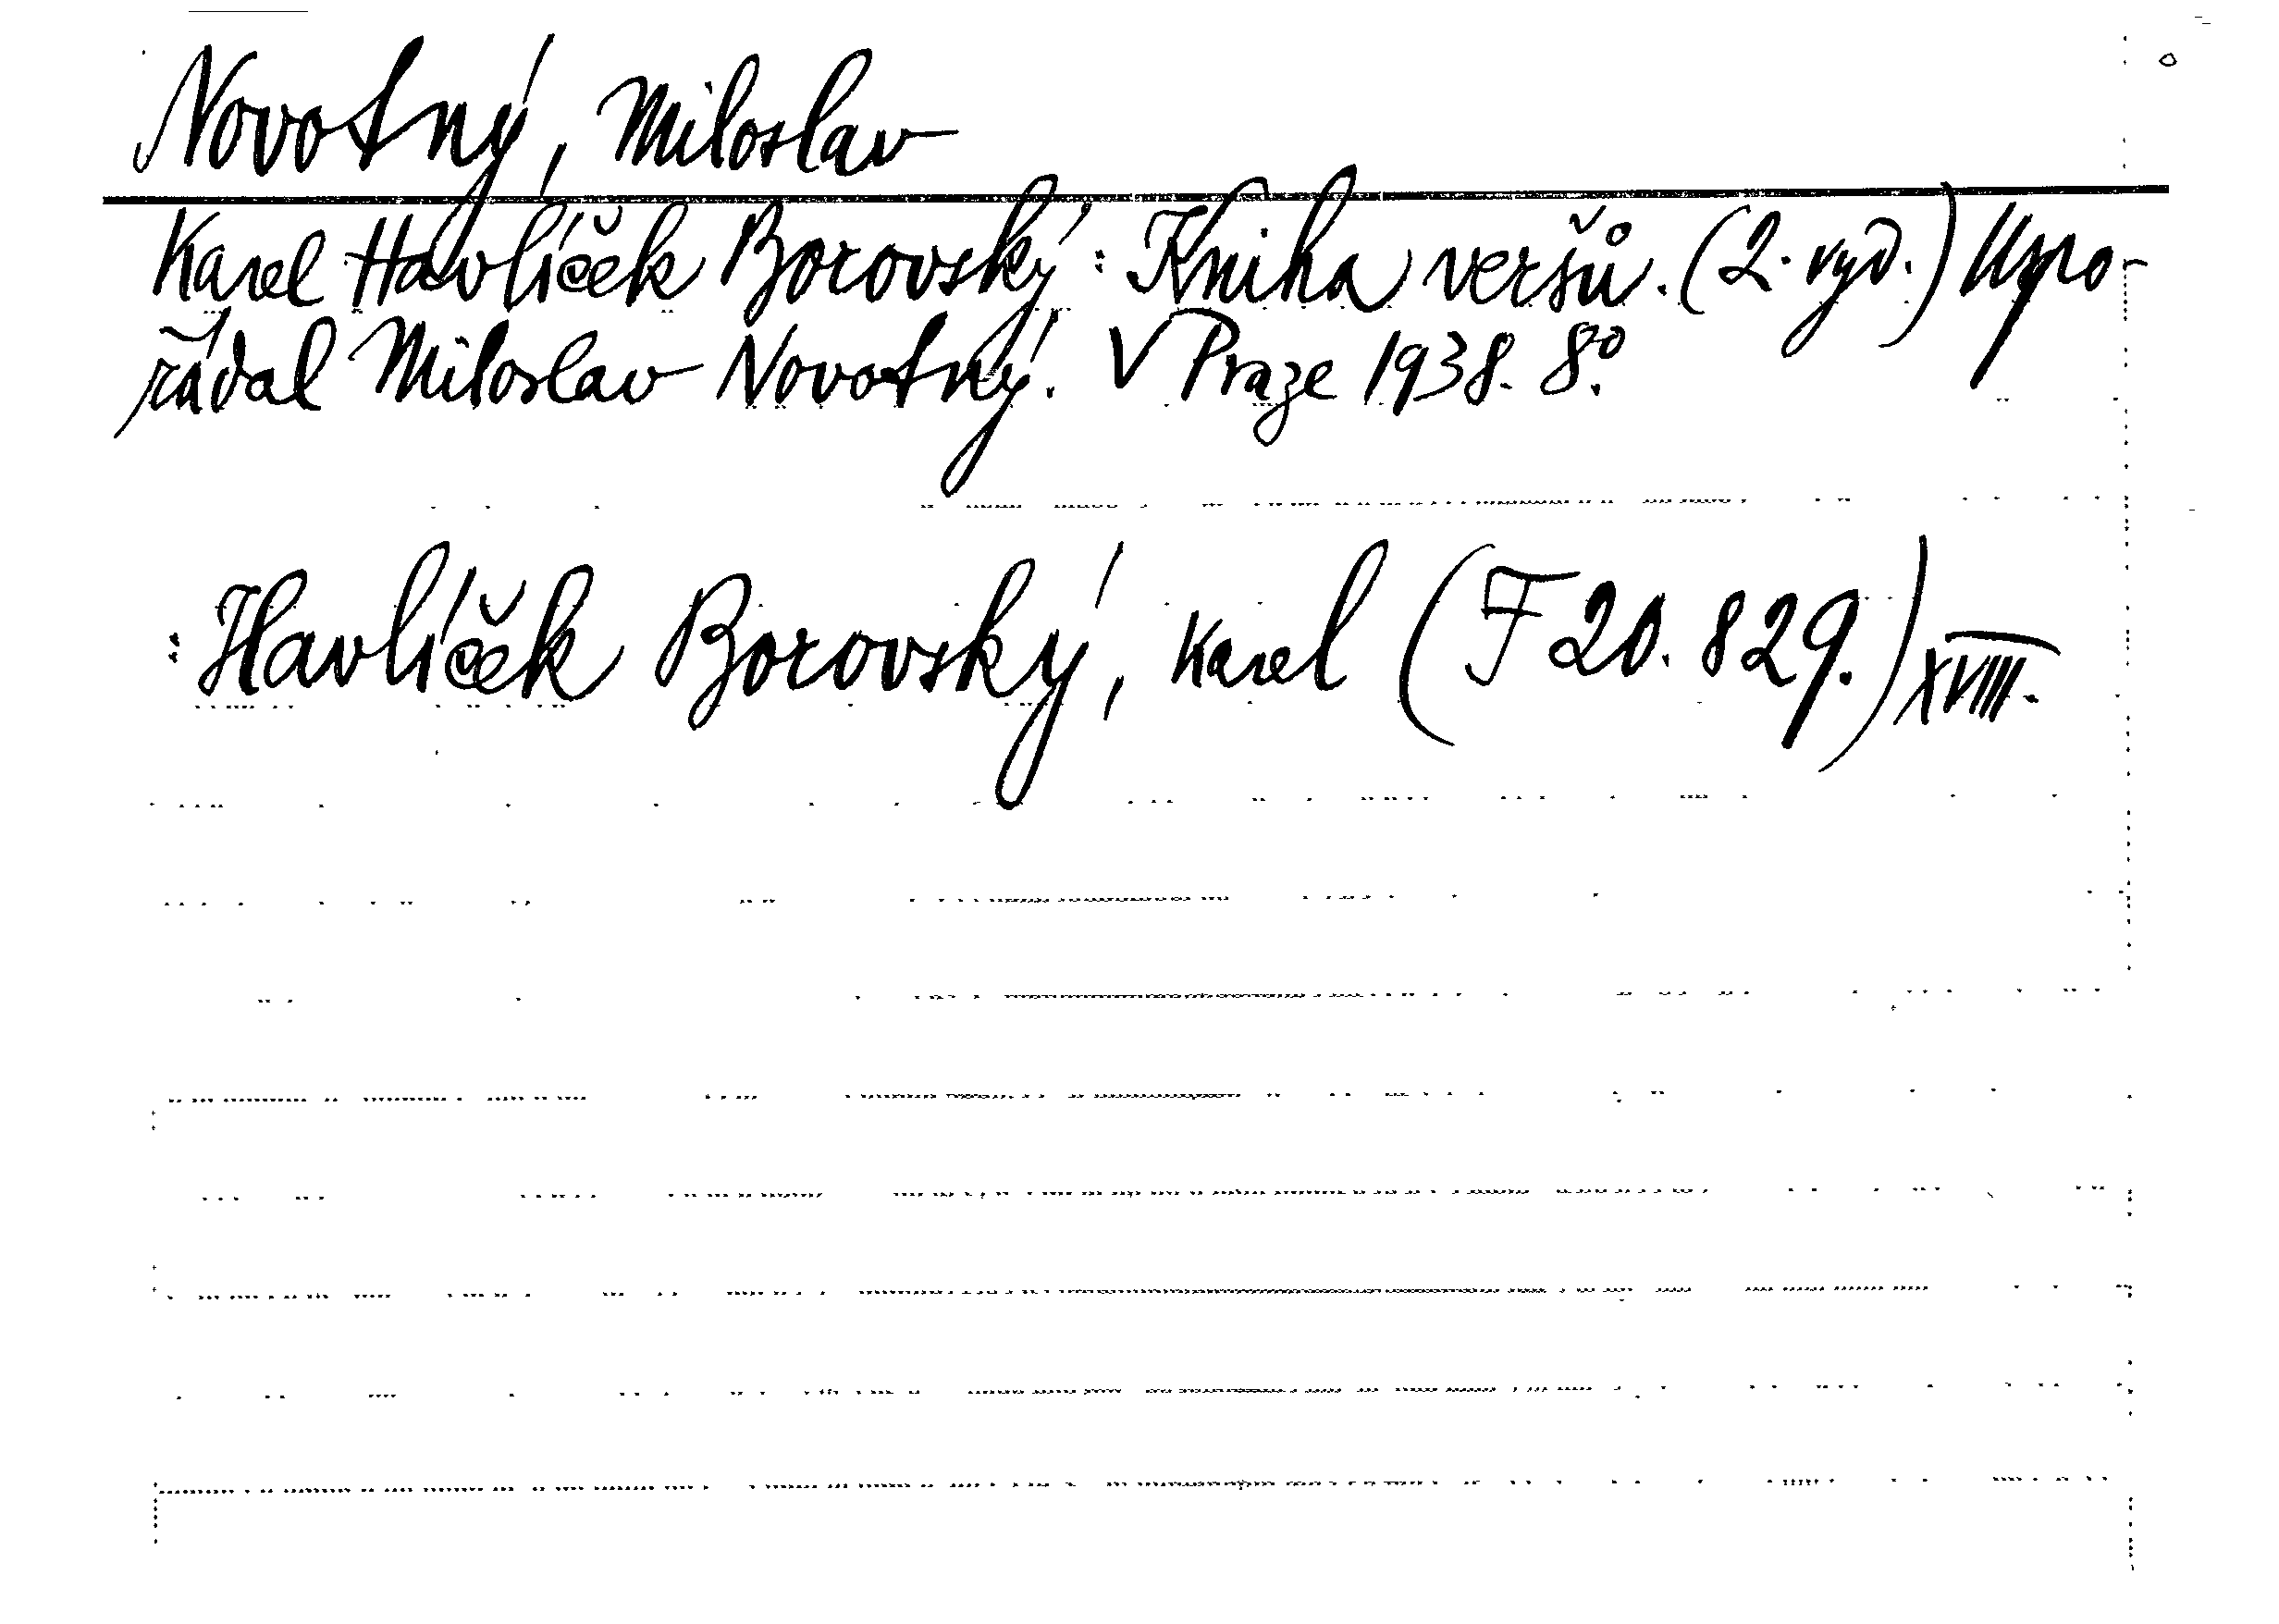 Novotný, Miloslav
Karel Havlíček Borovský: Kniha veršů. (2. vyd.) Uspo-
řádal Miloslav Novotný. V Praze 1938. 8º.
: Havlíček Borovský, Karel (F 20.829.) XVIII.